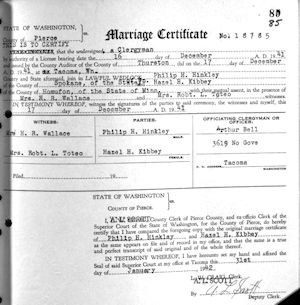 80
85
STATE OF WASHINGTON,
County of Pierce
Marriage Certificate No. 18785
THIS IS TO CERTIFY
that the undersigned, a Clergyman
by authority of a License bearing date the 16 day of December A. D. 1941
and issued by the County Auditor of the County of Thurston did on the 17 day of December
A. D. 1941 at Tacoma, Wn. Philip H. Hinkley
of the County of Spokane, of the State of Hazel H. Kibbey
of the State of Minn. with their mutual assent, in the presence of
Mrs. H. R. Wallace and Mrs. Robt. L. Toteo witnesses.
IN TESTIMONY WHEREOF, witness the signatures of the parties to said ceremony, the witnesses and myself, this
17 day of December A. D. 1941
WITNESSES
PARTIES
OFFICIATING CLERGYMAN OR
Mrs H. R. Wallace
Philip H. Hinkley
Arthur Bell
3619 No Gove
Mrs. Robt. L. Toteo
Hazel H. Kibbey
Tacoma
Filed
STATE OF WASHINGTON
COUNTY OF PIERCE.
County Clerk of Pierce County, and ex-officio Clerk of the
Superior Court of the State of Washington, for the County of Pierce, do hereby
certify that I have compared the foregoing copy with the original marriage certificate
of Philip H. Hinkley and Hazel H. Kibbey
as the same appears on file and of record in my office, and that the same is a true
and perfect transcript of said original and of the whole thereof.
IN TESTIMONY WHEREOF, I have hereunto set my hand and affixed the
Seal of said Superior Court at my office at Tacoma this 31st
day of January 1942.
A.L. SCOTT
By A. L. Scott
Deputy Clerk.